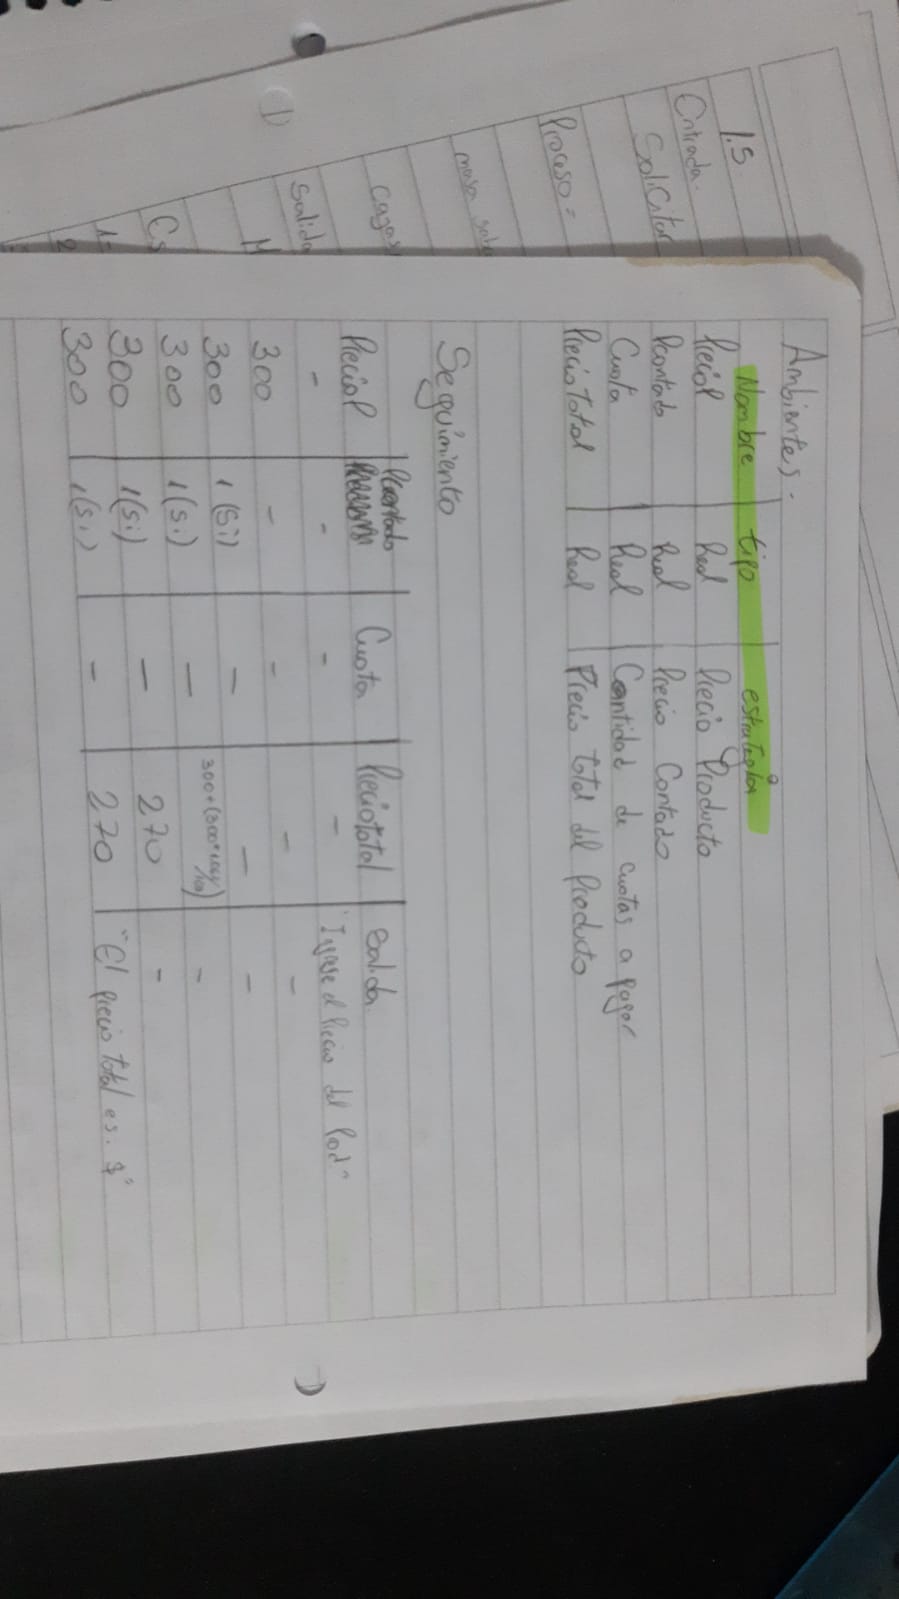 1.5
Entrada.
Solicitar
Proceso =
Salida
Ambientes.
Nombre tipo estrategia
Precio1 Real Precio Producto
Pcontado Real Precio Contado
Cuota Real Cantidad de cuotas a pagar
PrecioTotal Real Precio total del Producto
Seguimiento
Precio1 Pcontado Cuota Preciototal Salida.
- - - - "Ingrese el Precio del Prod."
300 - - - -
300 1(Si) - - -
300 1(Si) - -
300 1(Si) - 270 -
300 1(Si) - 270 "El precio total es. $"